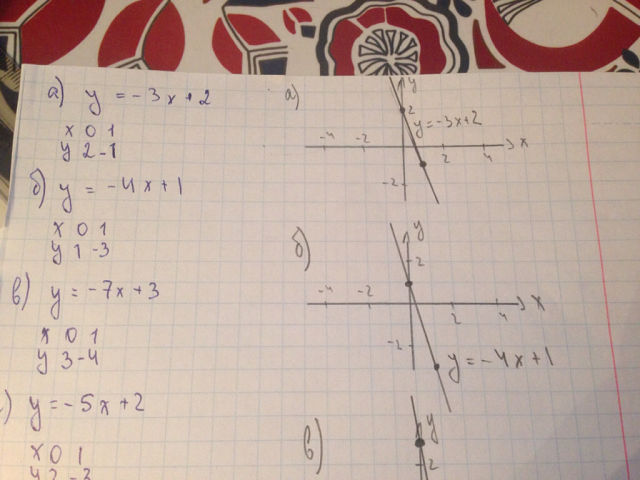 а) y = -3x+2
x 0 1
y 2 -1
б) y = -4x+1
x 0 1
y 1 -3
в) y = -7x+3
x 0 1
y 3 -4
) y = -5x+2
x 0 1
y 2 -3
а)
y
2
y=-3x+2
-4 -2 2 4 x
-2
б)
y
2
-4 -2 2 4 x
-2
y = -4x+1
в)
y
2